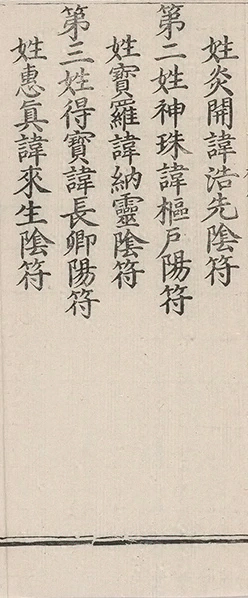 姓炎開諱浩先陰符
第二姓神珠諱樞戸陽符
姓寶羅諱納靈陰符
第三姓得寶諱長卿陽符
姓惠眞諱來生陰符